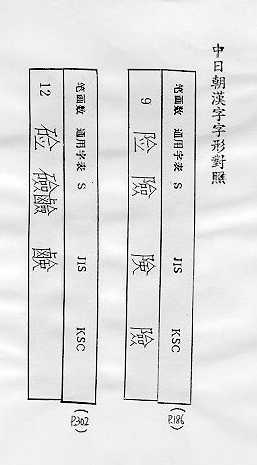 中日朝漢字字形對照
笔画数 通用字表 S JIS KSC
9 险 險 険 險
(P.186)
笔画数 通用字表 S JIS KSC
12 硷 礆鹼 鹸
(P.302)